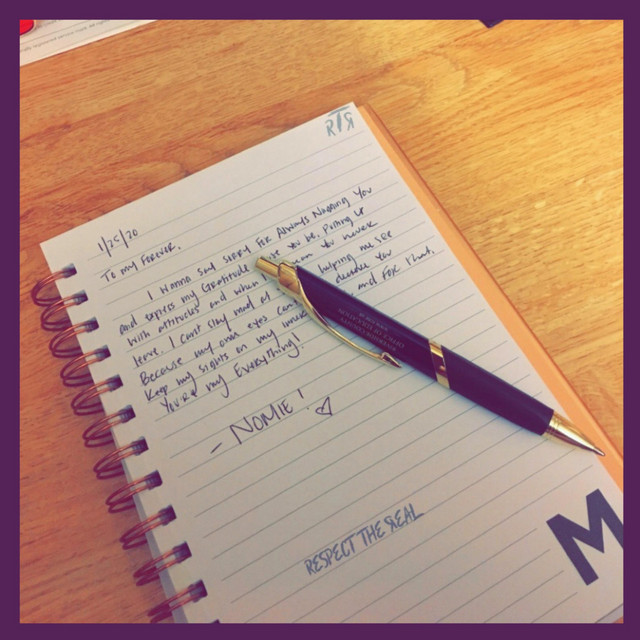 RTR
1/25/20
To my Forever,
I wanna say sorry for Always Nagging You
and express my Gratitude you be, Putting up
with attitudes and when you never
leave. I cant stay mad at helping me see
Because my own eyes can you
Keep my sights on my and For that,
You're my Everything!
- NOMIE!
RESPECT THE REAL
M